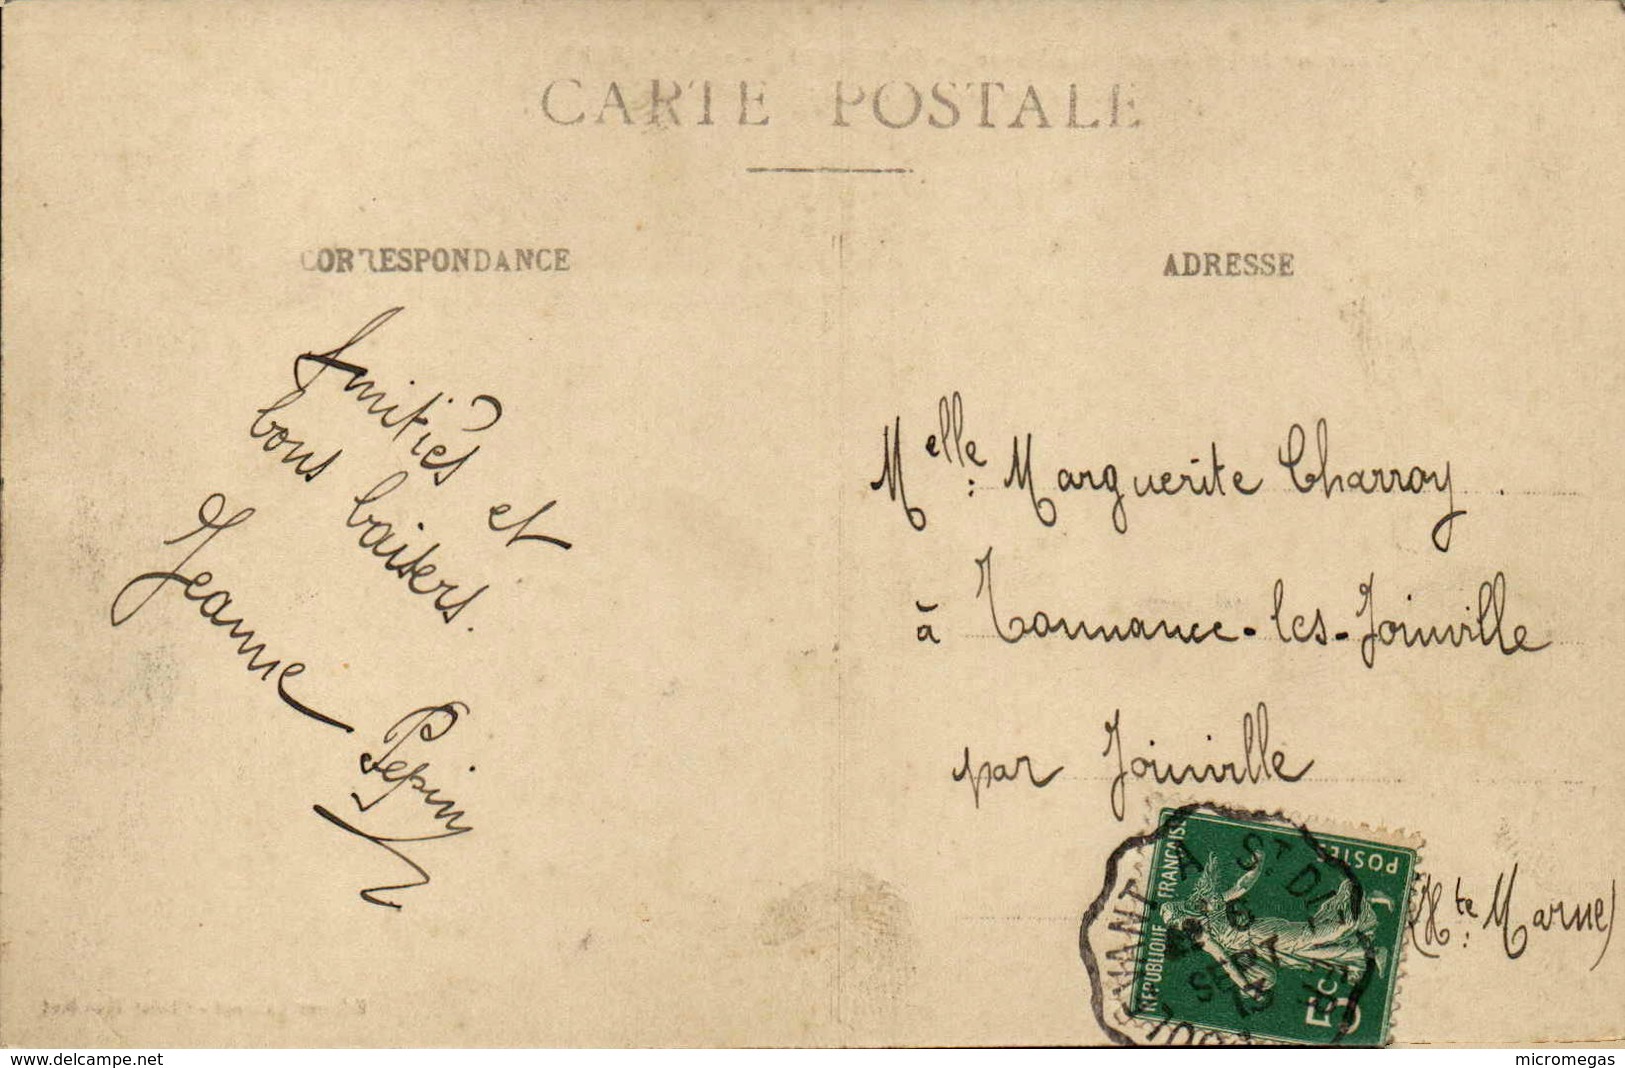 CARTE POSTALE
CORRESPONDANCE
Amitiés et
bons baisers.
Jeanne Pepin
ADRESSE
Melle: Marguerite Charroy
à Tonnance-les-Joinville
par Joinville
(Hte: Marne)
REPUBLIQUE FRANÇAISE
POSTES
5c
A ST DI
6
SEPT
13
delcampe.net
micromegas